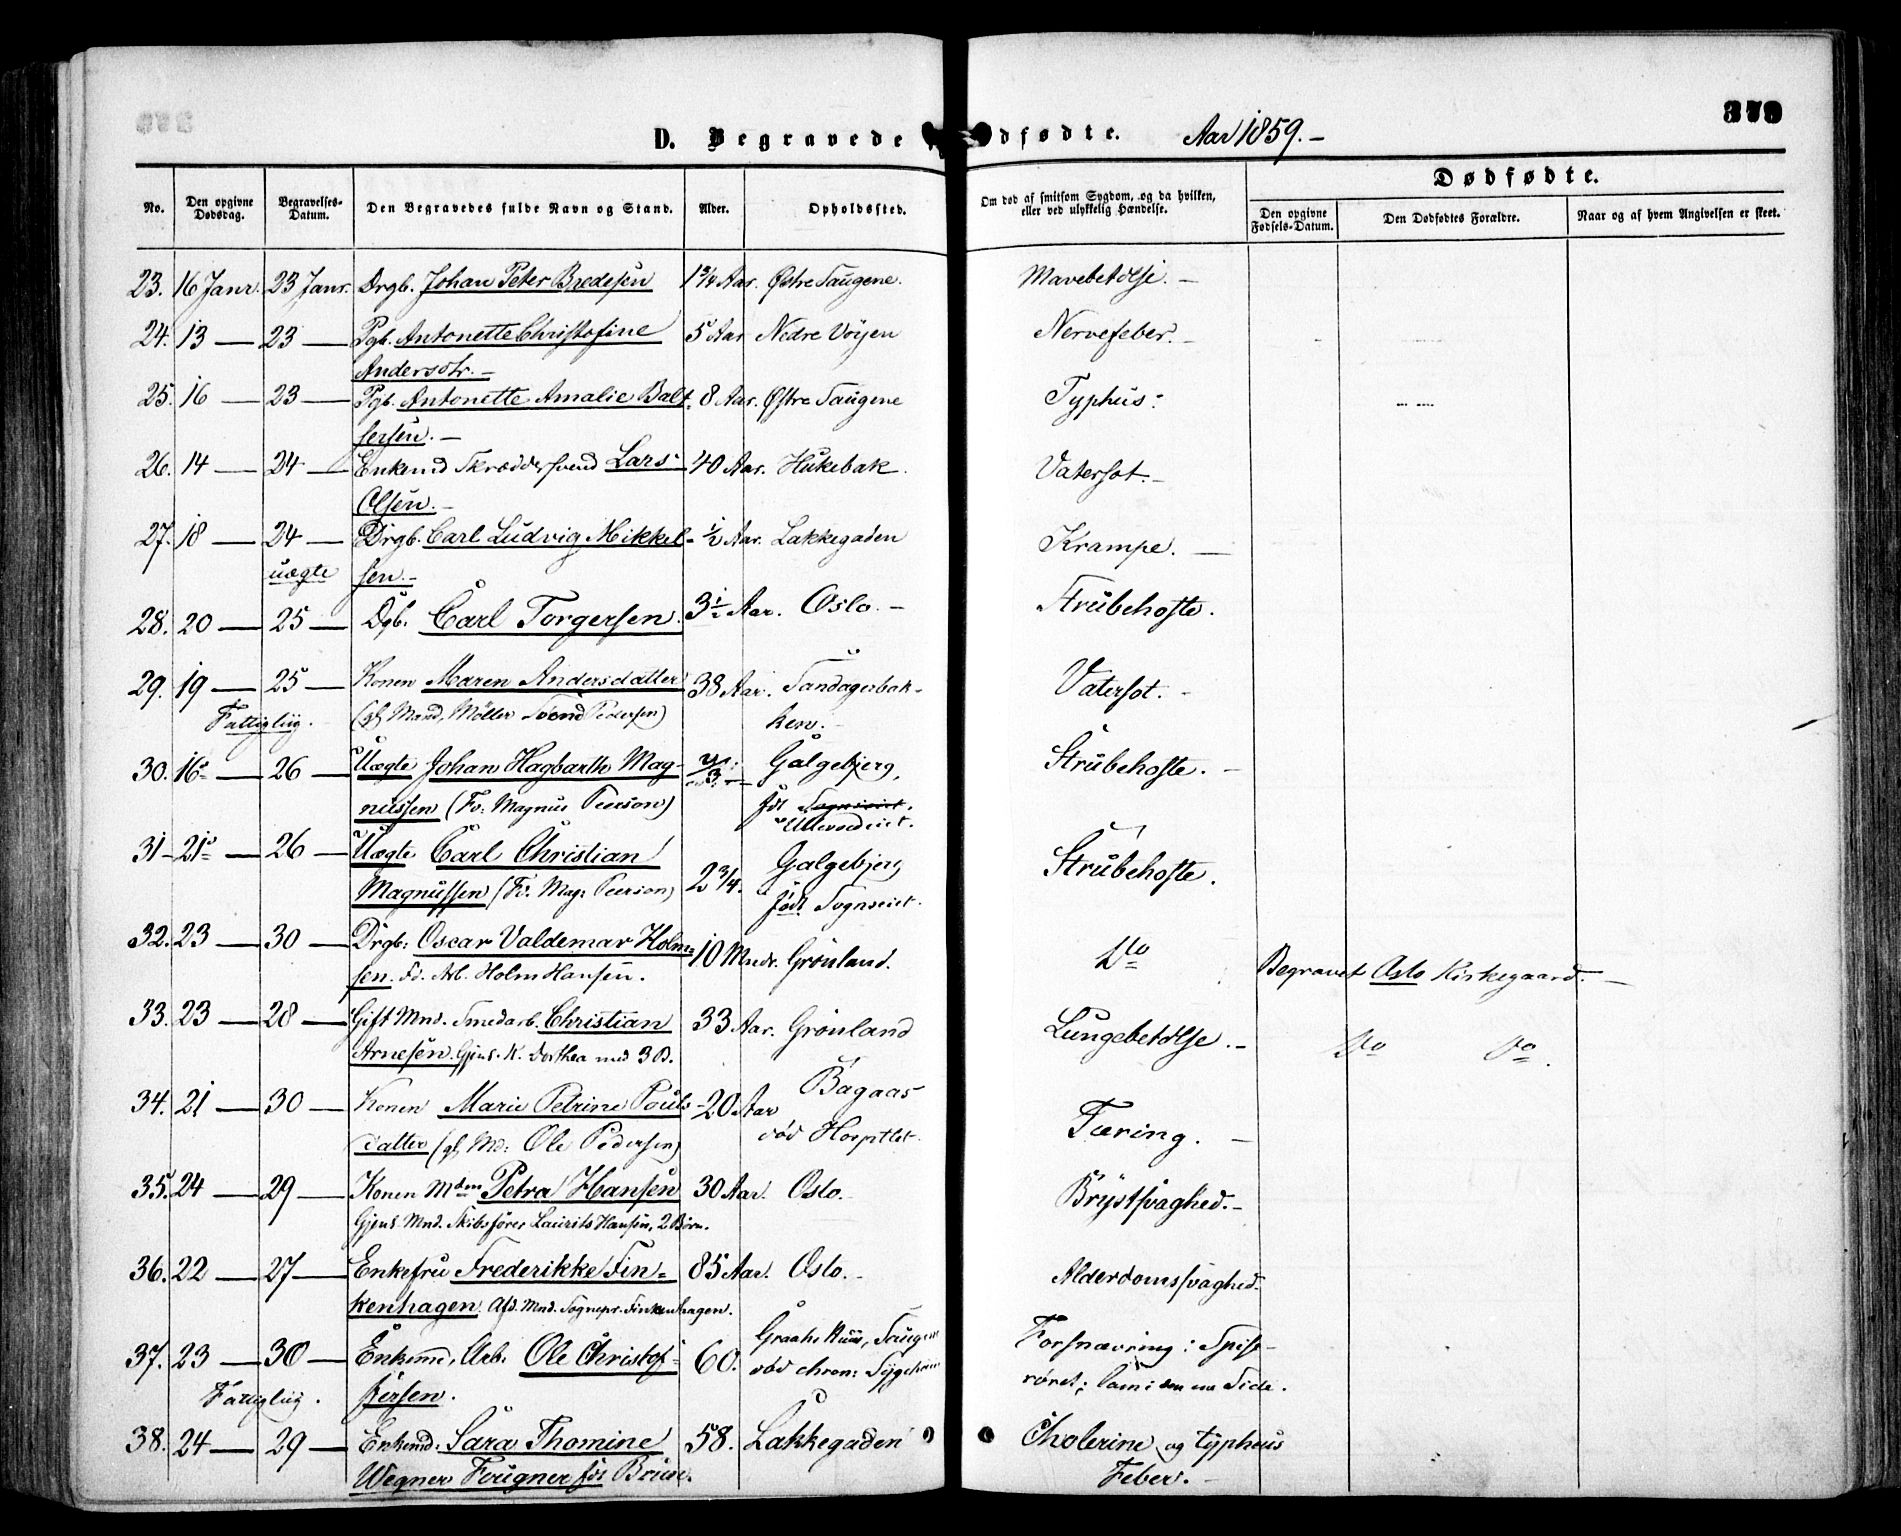 379
D. Begravede dfødte. Aar 1859.-
Dødfødte.
No. Den opgivne Dødsdag. Begravelses-Datum. Den Begravedes fulde Navn og Stand. Alder. Opholdssted. Om død af smitsom Sygdom, og da hvilken, eller ved ulykkelig Hændelse. Den opgivne Fødsels-Datum. Den Dødfødtes Forældre. Naar og af hvem Angivelsen er skeet.
23. 16 Janr. 23 Janr. Drgb. Johan Peter Bredesen 1 3/4 Aar. Østre Saugene. Mavebetølse. -
24. 13 — 23 — Pgb. Antonette Christofine 5 Aar Nedre Vøyen Nervefeber. -
Andersdtr. -
25. 16 — 23 — Pgb. Antonette Amalie Balt- 8 Aar. Østre Saugene Typhus.
sersen. -
26. 14 — 24 — Enkemd Skræddersvend Lars 40 Aar. Hukebak. Vatersot. -
Olsen. -
27. 18 — 24 — Drgb. Carl Ludvig Mikkel- 1/2 Aar. Lakkegaden Krampe. —
uægte sen. -
28. 20 — 25 — Dgb. Carl Torgersen. 3 1/2 Aar. Oslo. - Strubehoste.
29. 19 — 25 — Konen Maren Andersdatter 38 Aar. Sandagerbak- Vatersot. -
Fattiglig. (gl. Mand, Møller Svend Pedersen) ken. -
30. 16 — 26 — Uægte Johan Hagbarth Mag- 3 Galgebjerg, Strubehoste. -
nussen (Fv: Magnus Peerson) fdt Sognveiet.
Ullevoldveiet.
31 - 21 — 26 — Uægte Carl Christian 2 3/4. Galgebjerg Strubehoste.
Magnussen (Fv. Mag: Peerson) født Sognveiet.
32. 23 — 30 — Drgb: Oscar Valdemar Holm= 10 Mndr. Grønland. Do Begravet Oslo Kirkegaard. —
sen. Fd. Arb. Holm Hansen.
33. 23 — 28 — Gift Mnd. Smedarb. Christian 33 Aar. Grønland Lungebetølse. - Do Do.
Arnesen. Gjens. K. Dorthea med 3 B.
34. 21 — 30 — Konen Marie Petrine Pouls- 20 Aar Bagaas Tæring. —
datter (gl. Md: Ole Pedersen) død Hosptlet.
35. 24 — 29 — Konen Mdm Petra Hansen 30 Aar. Oslo. Brystsvaghed. -
Gjens. Mnd. Skibsfører Laurits Hansen, 2 Børn.
36. 22 — 27 — Enkefru Frederikke Fin= 85 Aar. Oslo. - Alderdomssvaghed.
kenhagen. Afd. Mnd. Sognepr. Finkenhagen.
37. 23 — 30 — Enkemd, Arb. Ole Christof- 60. Graahs Huus, Saugene Forsnævring i Spise-
Fattiglig. fersen. død chron: Sygehuus røret; lam i den ene Side.
38. 24 — 29 — Enkemd: Sara Thomine 58. Lakkegaden Cholerine og typheus
Wegner Fougner fdt Bruun. Feber. -